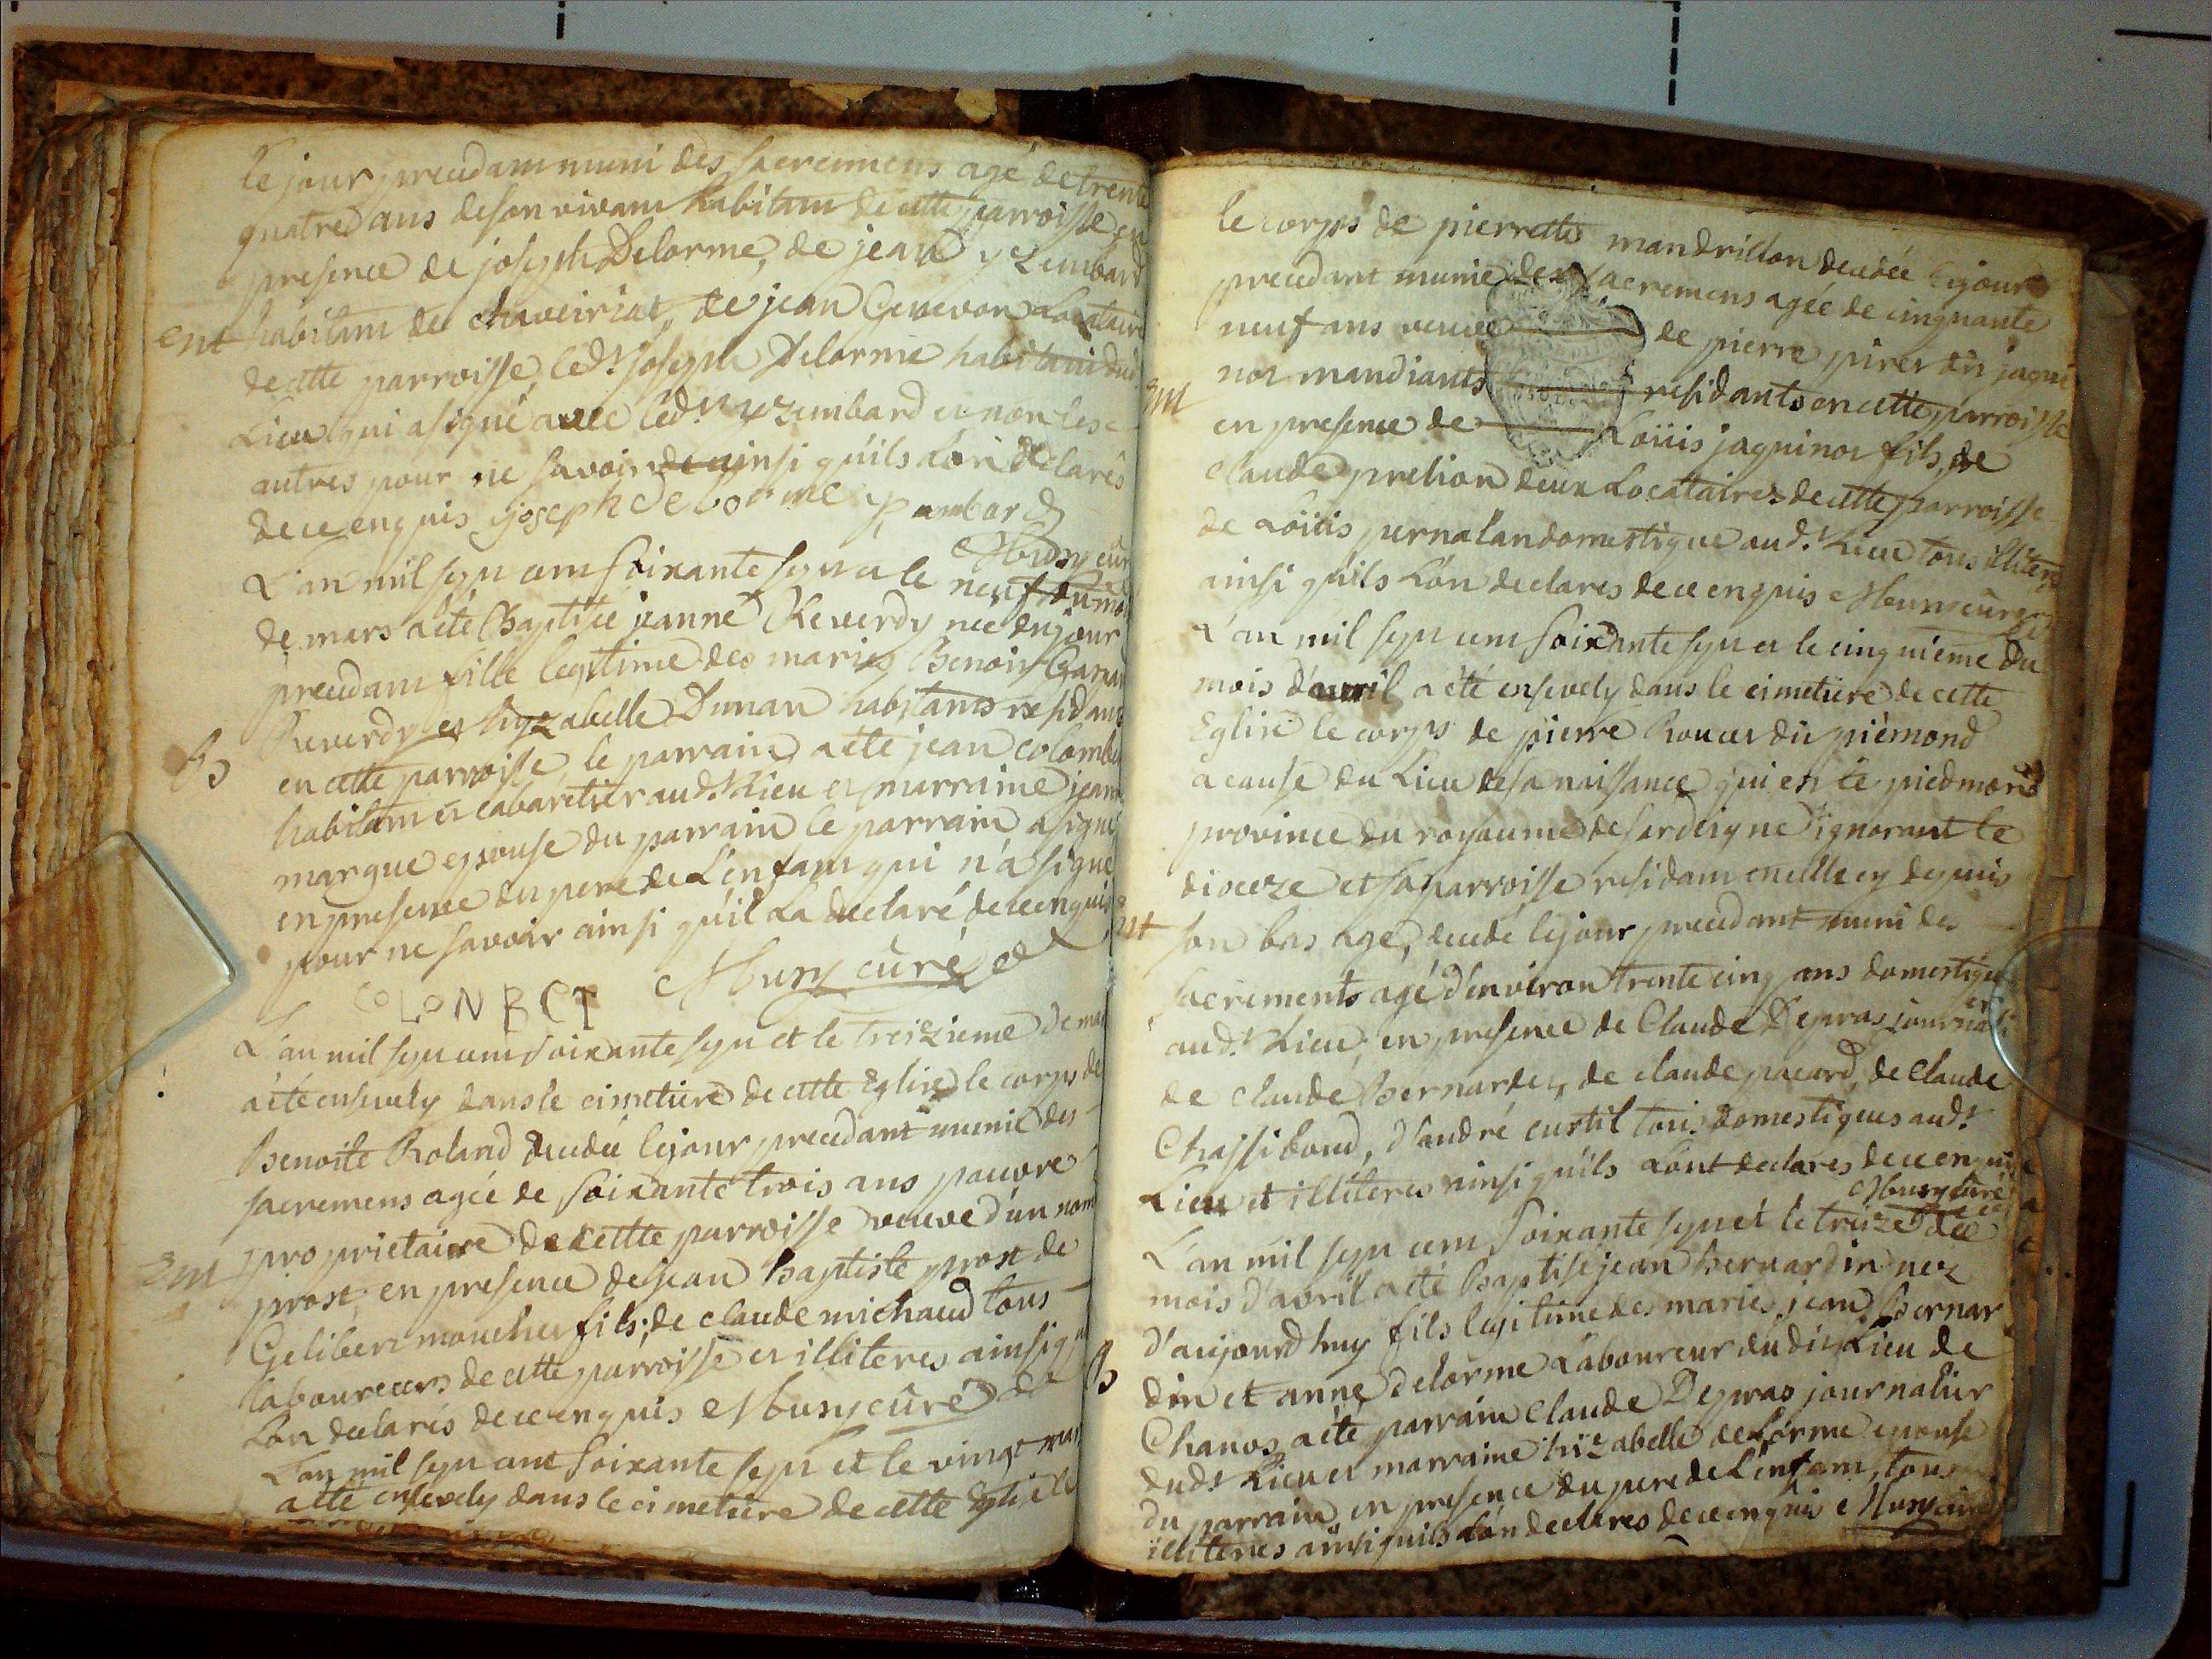 le jour precedam muni des sacremens agé de trente
quatre ans de son vivam habitam de cette parroisse en
presence de joseph Delorme, de jean
ent habitam de chaveiriat, de jean Genevon Locataire
de cette parroisse, led.t joseph Delorme habitam dud
Lieu qui a signé avec led.t et non les
autres pour ne savoir de ainsi qu'ils L'on declarés
de ce enquis joseph de Lorme
Musy curé
L'an mil sept cent soixante sept et le neuf du moi
de mars a été Baptisée jeanne Reverdy née du jour
precedam fille legitime des mariés Benoit
B Reverdy et hyzabelle Dunan habitants residant
en cette parroisse, le parrain a été jean colombe
habitam et cabaretier aud.t Lieu et marraine jeanne
margue epouse du parrain le parrain a signé
en presence du pere de L'enfam qui n'a signé
pour ne savoir ainsi qu'il La declaré de ce enquis
COLONBET Musy curé
L'an mil sept cent soixante sept et le treizieme de mar
a été ensevely dans le cimetiere de cette Eglise le corps de
Benoite Roland decedée le jour precedant munie des
sacremens agée de soixante trois ans pauvre
Ent proprietaire de cette parroisse veuve d'un nom
prost, en presence de jean Baptiste prost de
Gelibert mouchet fils; de claude michaud tous
laboureurs de cette parroisse et illiteres ainsi qu
Lon declarés de ce enquis Musy curé
L'an mil sept cent soixante sept et le vingt mar
a été ensevely dans le cimetiere de cette Eglise
le corps de pierrette mandrillon decedée le jour
precedant munie des sacremens agée de cinquante
neuf ans veuve de pierre pirer dit jaqui
Ent not mandiants residants en cette parroisse
en presence de Loüis jaquinot fils, de
claude prelion deux Locataires de cette parroisse
de Loüis pernalan domestique aud.t Lieu tous illiteres
ainsi qu'ils L'on declares de ce enquis Musy curé
L'an mil sept cent soixante sept et le cinquiéme du
mois d'avril a été ensevely dans le cimetiere de cette
Eglise le corps de pierre Rouer dit piémond
a cause du Lieu de sa naissance qui est le piedmond
province du royaume de sardeigne ignorant le
dioceze et sa parroisse residam en cy depuis
Ent son bas age, decedé le jour precedant muni des
sacrements agé d'environ trente cinq ans domestique
aud.t Lieu, en presence de Claude Depras journali
er
de claude Bernardet, de claude pacard, de claude
Chassiboud, d'andré curtil tous domestiques aud.t
Lieu et illiteres ainsi qu'ils L'ont declares de ce enquis
Musy curé
L'an mil sept cent soixante sept et le treize du
mois d'avril a été Baptisé jean Bernardin nez
d'aujourdhuy fils legitime des mariés jean Bernar
B din et anne delorme Laboureur dudit Lieu de
Chanos a été parrain Claude Depras journalier
dud.t Lieu et marraine hizabelle de Lorme epouse
du parrain en presence du pere de L'enfam, tous
illiteres ainsi quils L'on declares de ce enquis Musy curé